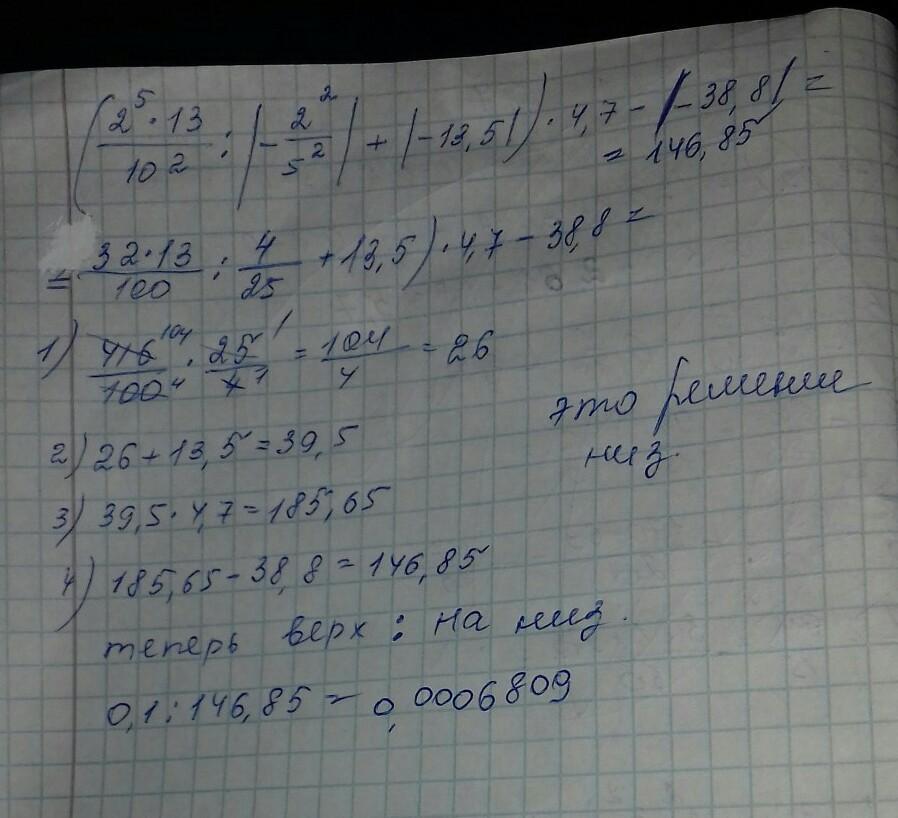 (2⁵·13/10² : |-2²/5²| + |-13,5|) · 4,7 - |-38,8| =
= 146,85
= 32·13/100 : 4/25 + 13,5) · 4,7 - 38,8 =
1) 416 104/100 4 · 25 1/4 1 = 104/4 = 26
это решение
низ.
2) 26 + 13,5 = 39,5
3) 39,5 · 4,7 = 185,65
4) 185,65 - 38,8 = 146,85
теперь верх : на низ.
0,1 : 146,85 = 0,0006809